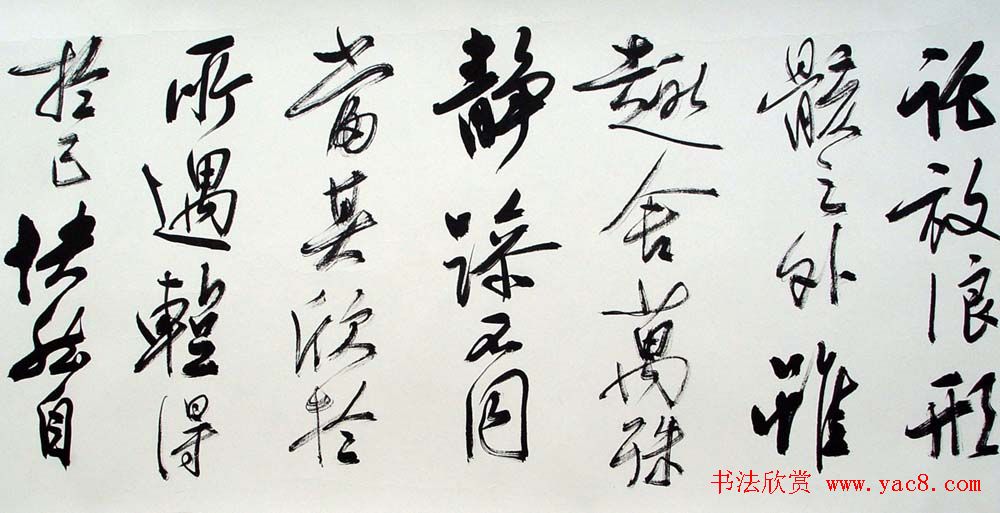 託放浪形
骸之外雖
趣舍萬殊
静躁不同
當其欣於
所遇暫得
於己快然自
书法欣赏 www.yac8.com